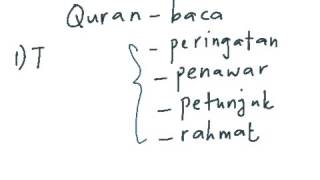 Quran - baca
1) T
- peringatan
- penawar
- petunjuk
- rahmat